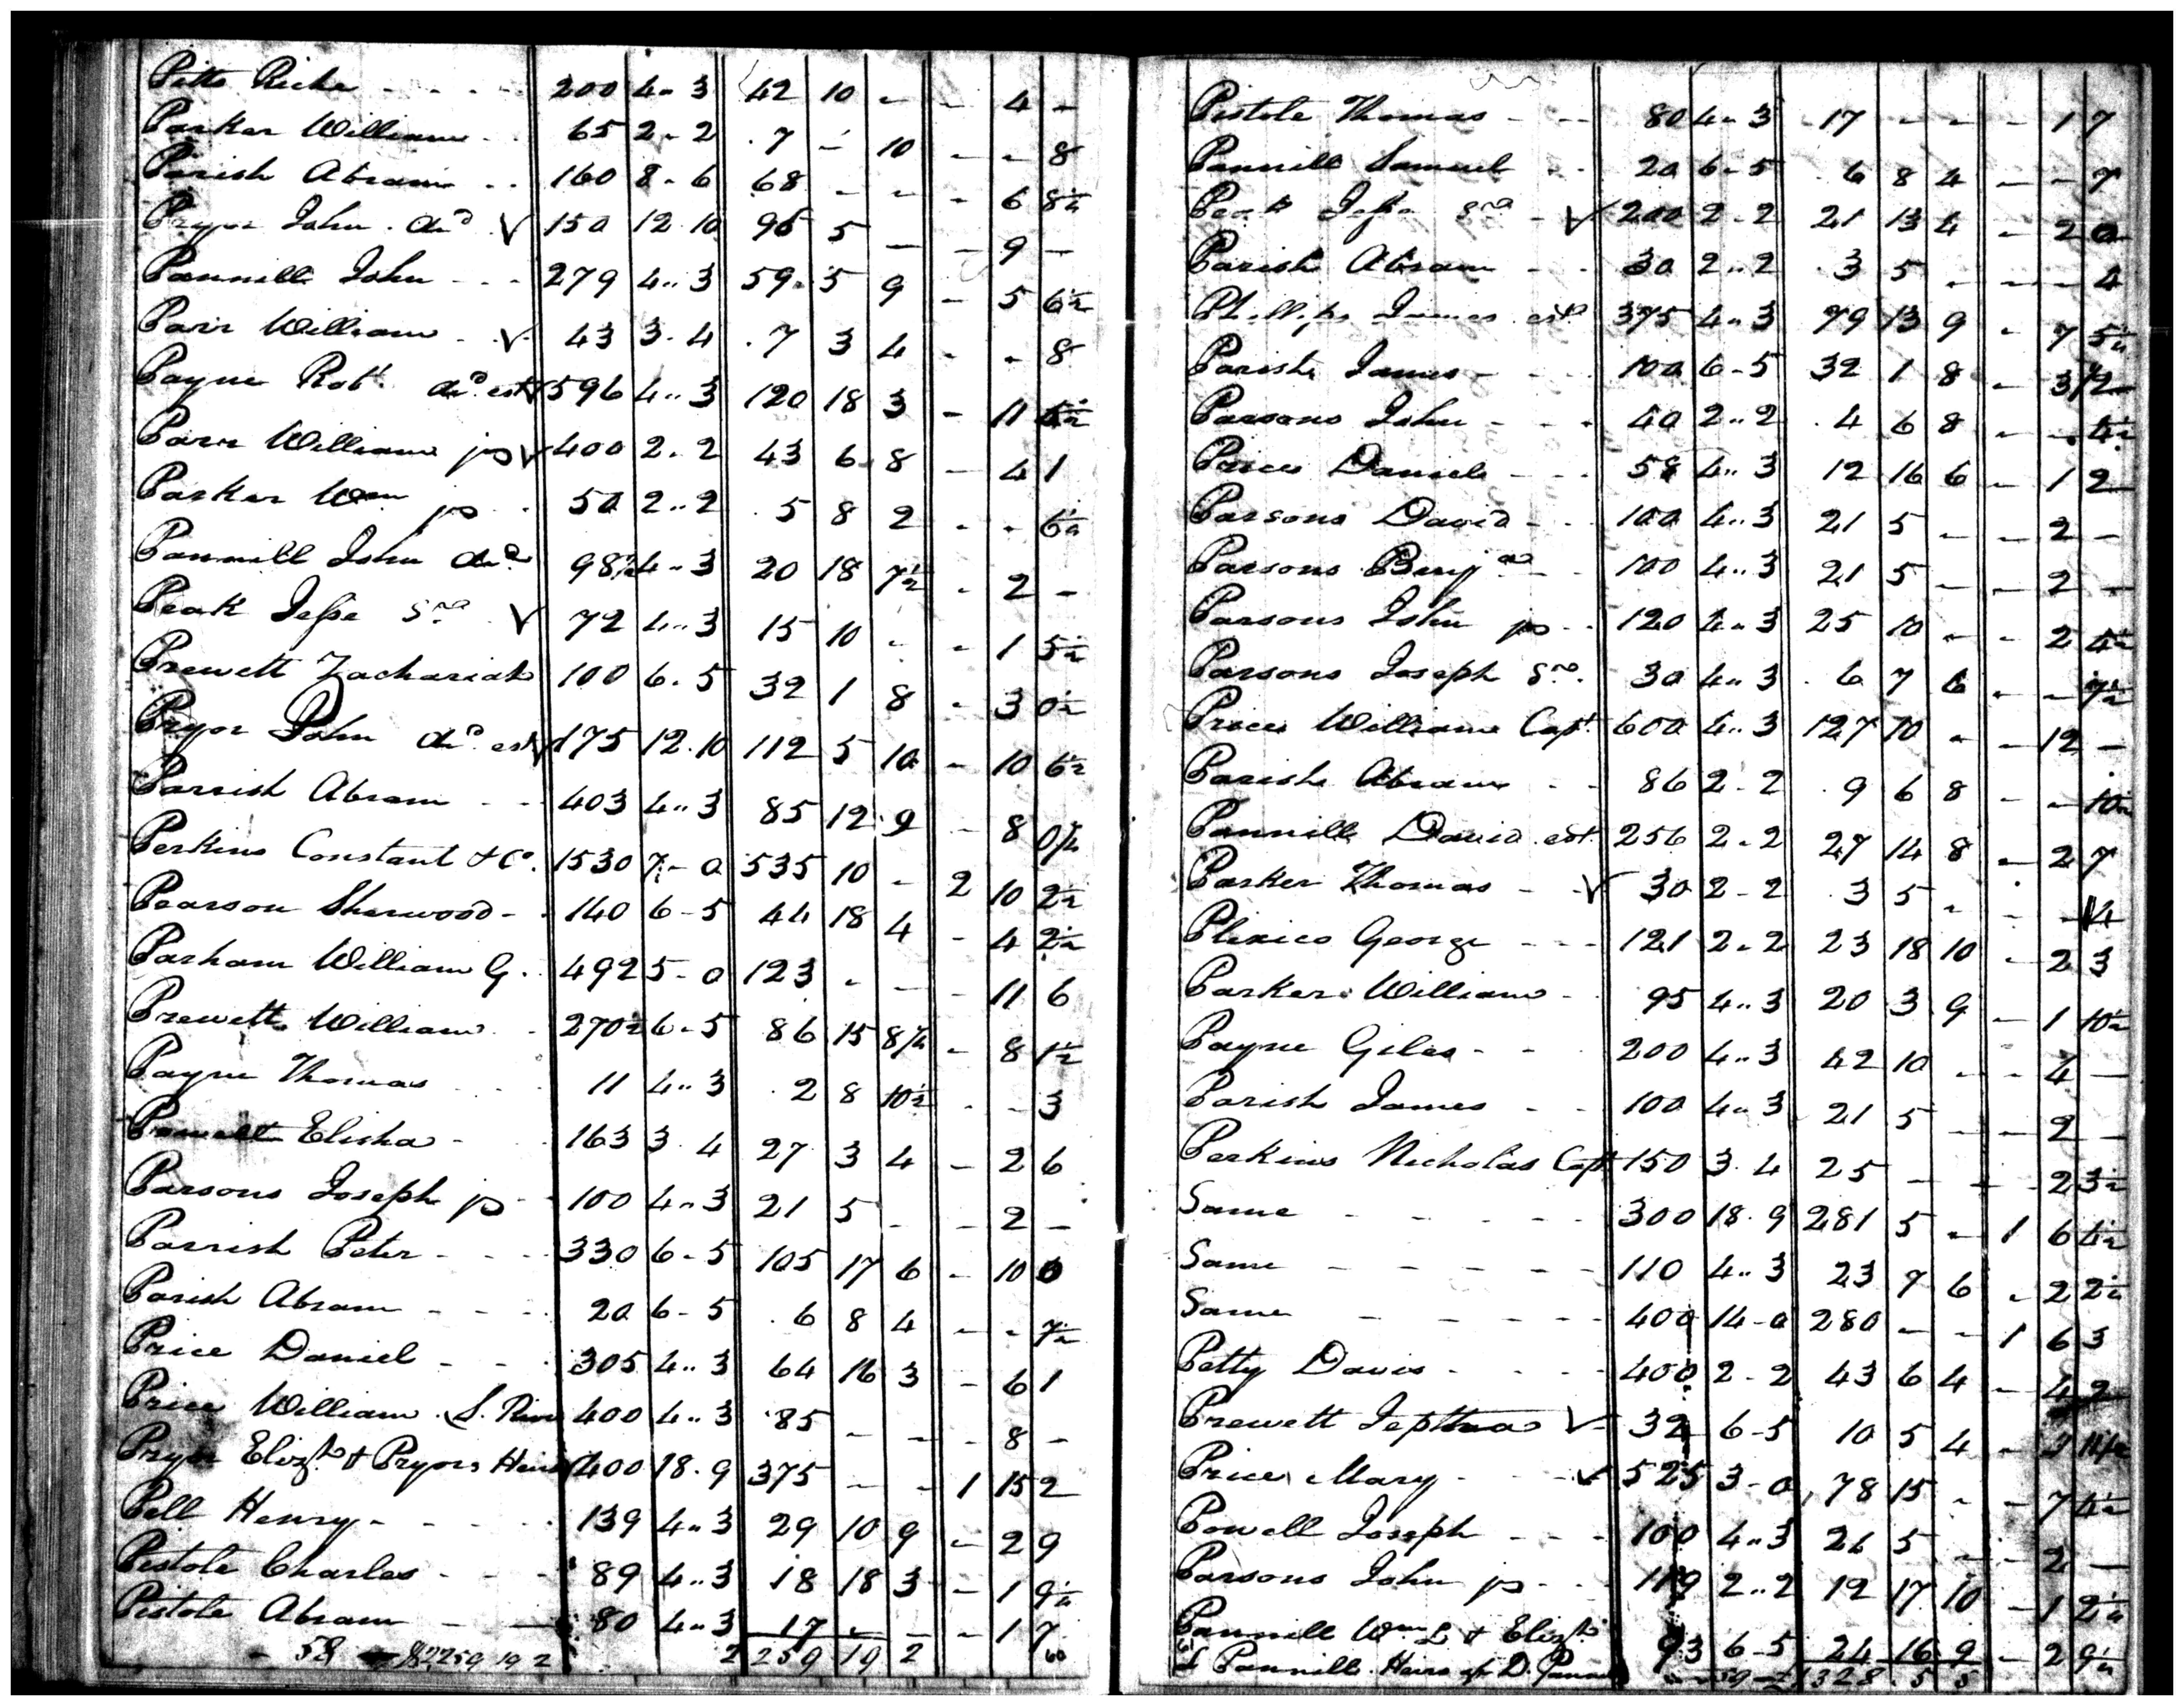 Pitts Richd - - - 200 4 - 3 42 10 - - 4 -
Parker William - 65 2 - 2 7 - 10 - - 8
Parish Abram - - 160 8 - 6 68 - - - 6 8½
Pryor John decd 150 12 10 95 5 - - 9 -
Pannill John - - - 279 4 .. 3 59 5 9 - 5 6½
Parr William - 43 3 . 4 7 3 4 - - 8
Payne Robt decd est 596 4 .. 3 120 18 3 - 11
Parr William jr 400 2 . 2 43 6 8 - 4 1
Parker Wm jr 50 2 .. 2 5 8 2 - - 6½
Pannill John decd 98½ 4 .. 3 20 18 7½ - 2 -
Peak Jesse Snr 72 4 .. 3 15 10 - - 1 5½
Prewett Zachariah 100 6 . 5 32 1 8 - 3 0½
Pryor John decd est 175 12 . 10 112 5 10 - 10 6½
Parrish Abram - - 403 4 .. 3 85 12 9 - 8 0½
Perkins Constant & Co. 1530 7 - 0 535 10 - 2 10 2½
Pearson Sherwood - 140 6 - 5 44 18 4 - 4 2½
Parham William G. 492 5 - 0 123 - - - 11 6
Prewett William - 270½ 6 - 5 86 15 8½ - 8 1½
Payne Thomas - - 11 4 .. 3 2 8 10½ - - 3
Elisha - 163 3 . 4 27 3 4 - 2 6
Parsons Joseph jr - 100 4 .. 3 21 5 - - 2 -
Parrish Peter - - - 330 6 - 5 105 17 6 - 10 0
Parish Abram - - - 20 6 - 5 6 8 4 - - 7½
Price Daniel - - - 305 4 .. 3 64 16 3 - 6 1
Price William S. River 400 4 .. 3 85 - - - 8 -
Pryor Elizth & Pryors Heirs 400 18 . 9 375 - - 1 15 2
Pell Henry - - - - 139 4 .. 3 29 10 9 - 2 9
Pistole Charles - - - 89 4 .. 3 18 18 3 - 1 9½
Pistole Abram - - 80 4 .. 3 17 - - - 1 7
- 58 2259 19 2 2259 19 2 60
Pistole Thomas - - 80 4 .. 3 17 - - - 1 7
Pannill Samuel - - 20 6 - 5 6 8 4 - - 7
Peak Jesse Snr - 200 2 - 2 21 13 4 - 2 0
Parish Abram - - 30 2 .. 2 3 5 - - - 4
Phillips James est. 375 4 .. 3 79 13 9 - 7 5½
Parish James - - - 100 6 - 5 32 1 8 - 3
Parsons John - - - 40 2 .. 2 4 6 8 - - 4½
Price Daniel - - - 58 4 .. 3 12 16 6 - 1 2
Parsons David - - 100 4 .. 3 21 5 - - 2 -
Parsons Benja - - 100 4 .. 3 21 5 - - 2 -
Parsons John jr - - 120 4 .. 3 25 10 - - 2 4½
Parsons Joseph Snr. 30 4 .. 3 6 7 6 - - 7½
Price William Capt. 600 4 .. 3 127 10 - - 12 -
Parish Abram - - 86 2 - 2 9 6 8 - - 10½
Pannill David est. 256 2 - 2 27 14 8 - 2 7
Parker Thomas - 30 2 - 2 3 5 - - - 4
Plexico George - - - 121 2 - 2 23 18 10 - 2 3
Parker William - 95 4 .. 3 20 3 9 - 1 10½
Payne Giles - - - 200 4 .. 3 42 10 - - 4 -
Parish James - - 100 4 .. 3 21 5 - - 2 -
Perkins Nicholas Capt. 150 3 . 4 25 - - - 2 3½
Same - - - - 300 18 . 9 281 5 - 1 6 4½
Same - - - - - 110 4 .. 3 23 7 6 - 2 2½
Same - - - - 400 14 - 0 280 - - 1 6 3
Petty Davis - - - 400 2 - 2 43 6 4 - 4 2
Prewett Jeptha 32 6 - 5 10 5 4 -
Price Mary - - 525 3 - 0 78 15 - - 7 4½
Powell Joseph - - - 100 4 .. 3 21 5 - - 2 -
Parsons John jr - - 119 2 .. 2 12 17 10 - 1 2½
Pannill Wm L & Elizth
& Pannill Heirs of D. Pannill 93 6 - 5 24 16 9 - 2 9½
1328 5 5